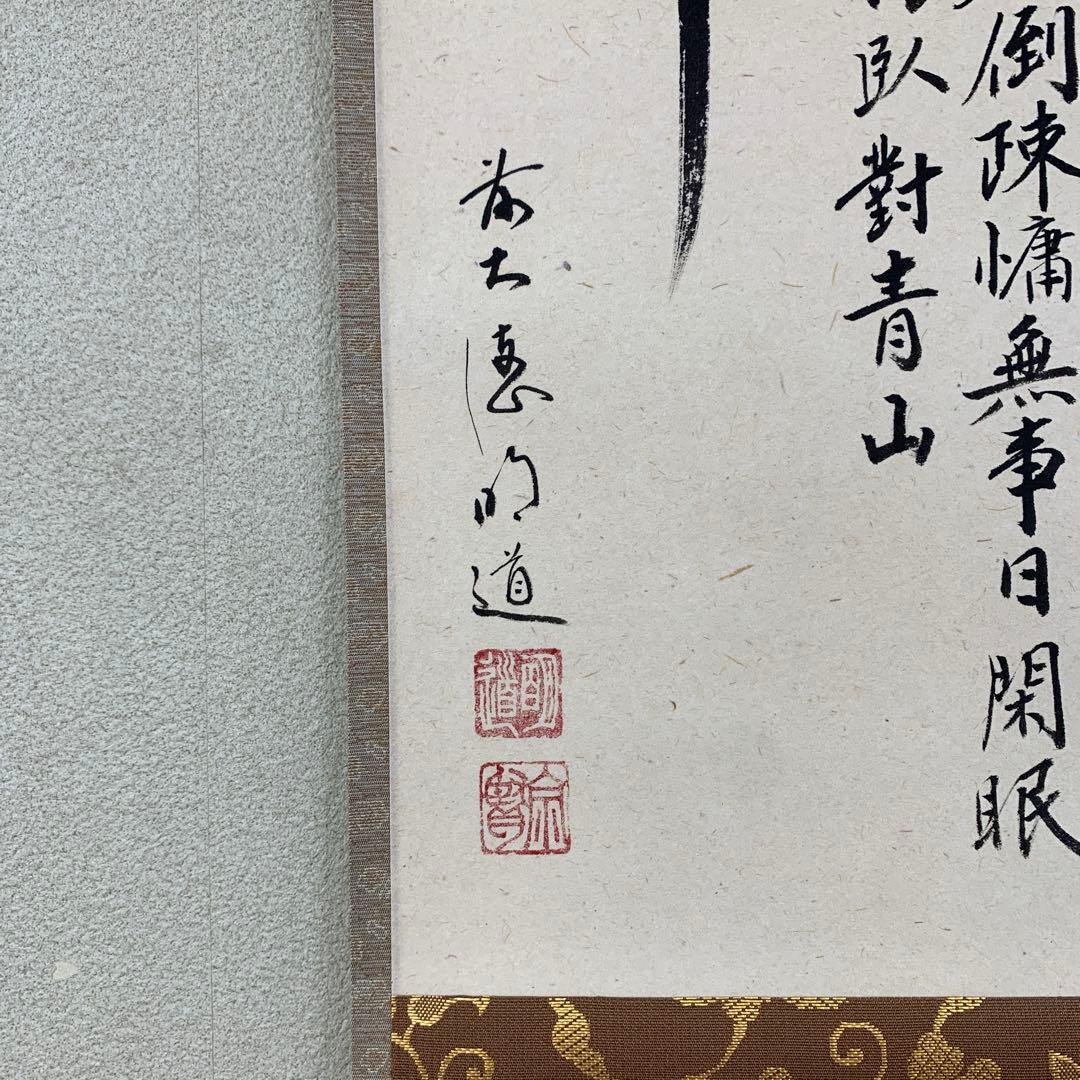 倒疎慵無事日閑眠
臥對青山
前大徳明道
明道